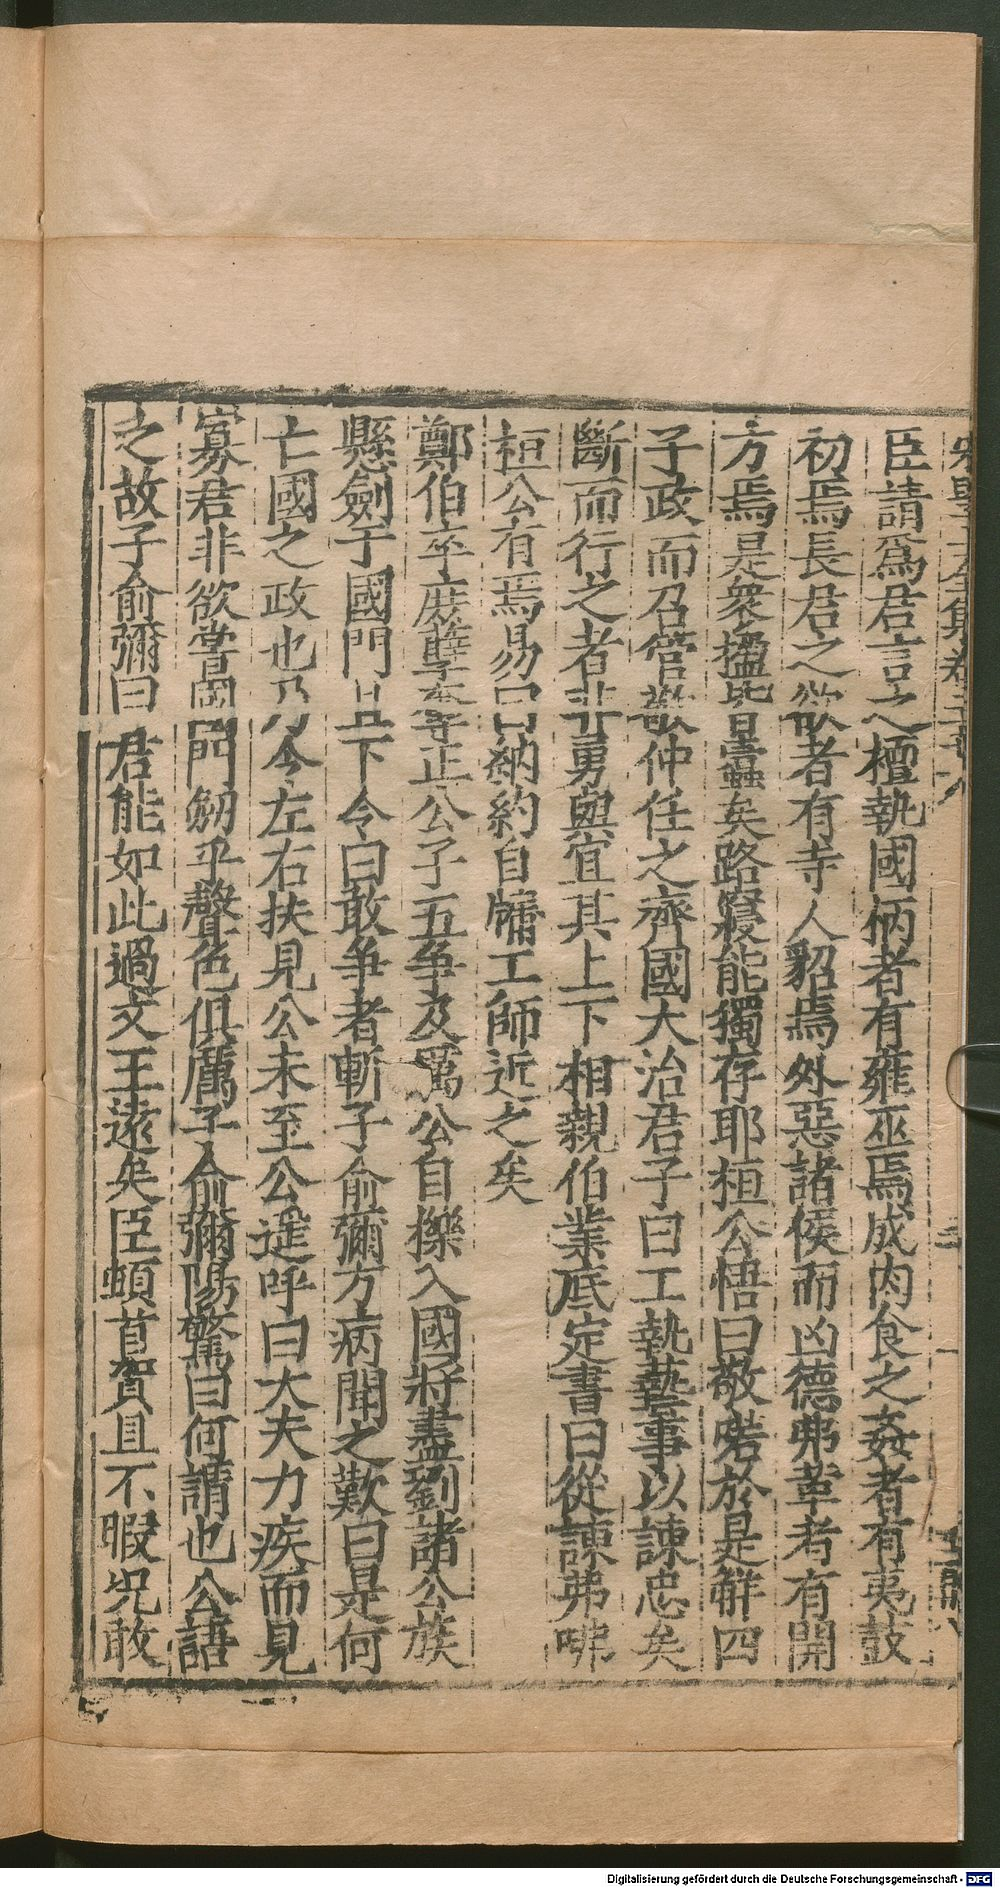 臣請爲君言之擅執國柄者有雍巫焉成肉食之姦者有夷鼓
初焉長君之欲者有寺人貂焉外惡諸侯而凶德弗革者有開
方焉是衆搵皆蠱矣路寢能獨存耶桓公悟曰敬喏於是觧四
子政而召管敬仲任之齊國大治君子曰工執藝事以諫忠矣
斷而行之者非勇與宜其上下相親伯業底定書曰從諫弗咈
桓公有焉易曰納約自牖工師近之矣
鄭伯卒庶孽奪正公子五爭及厲公自櫟入國將盡劉諸公族
懸劍于國門且下令曰敢爭者斬子俞彌方病聞之歎曰是何
亡國之政也乃令左右扶見公未至公遥呼曰大夫力疾而見
寡君非欲嘗國門劒乎聲色俱厲子俞彌陽驚曰何謂也公語
之故子俞彌曰君能如此過文王遠矣臣頓首賀且不暇况敢
Digitalisierung gefördert durch die Deutsche Forschungsgemeinschaft - DFG